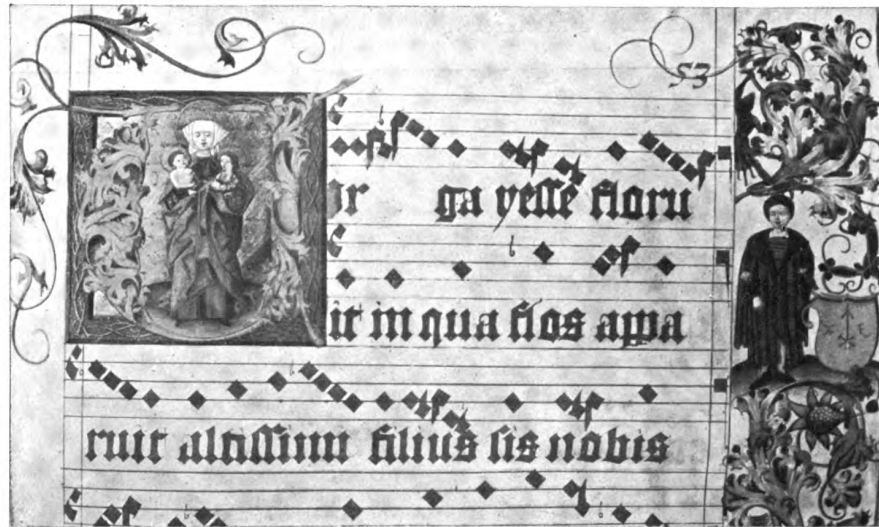 53
Vir ga yesse floru
it in qua flos appa
ruit altissimi filius sis nobis